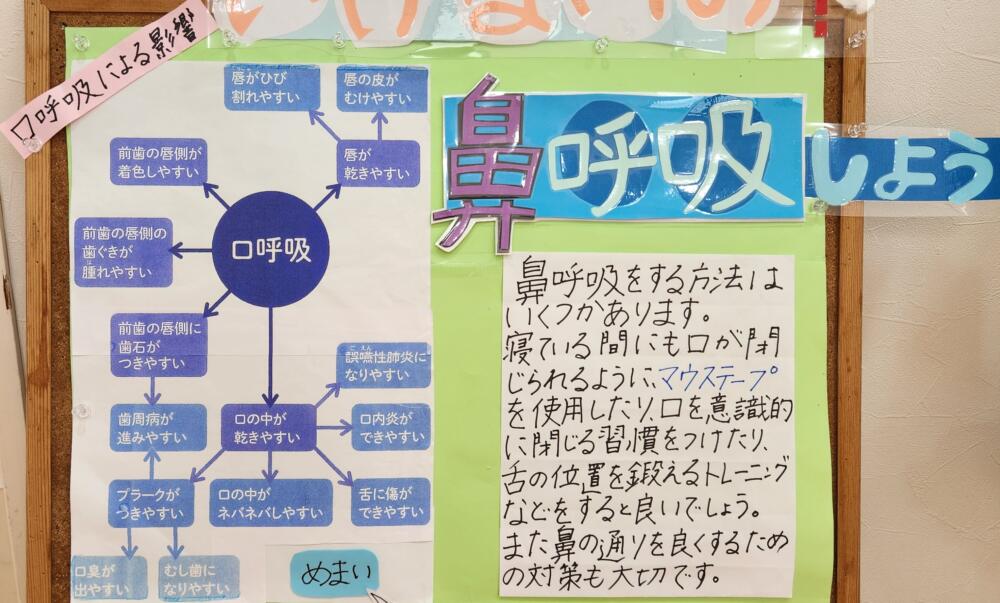 口呼吸による影響
唇がひび
割れやすい
唇の皮が
むけやすい
前歯の唇側が
着色しやすい
唇が
乾きやすい
前歯の唇側の
歯ぐきが
腫れやすい
は
口呼吸
前歯の唇側に
歯石が
つきやすい
ごえん
誤嚥性肺炎に
なりやすい
歯周病が
進みやすい
口の中が
乾きやすい
口内炎が
できやすい
プラークが
つきやすい
口の中が
ネバネバしやすい
舌に傷が
できやすい
口臭が
出やすい
むし歯に
なりやすい
めまい
鼻呼吸しよう
鼻呼吸をする方法は
いくつかあります。
寝ている間にも口が閉
じられるように、マウステープ
を使用したり、口を意識的
に閉じる習慣をつけたり、
舌の位置を鍛えるトレーニング
などをすると良いでしょう。
また鼻の通りを良くするため
の対策も大切です。